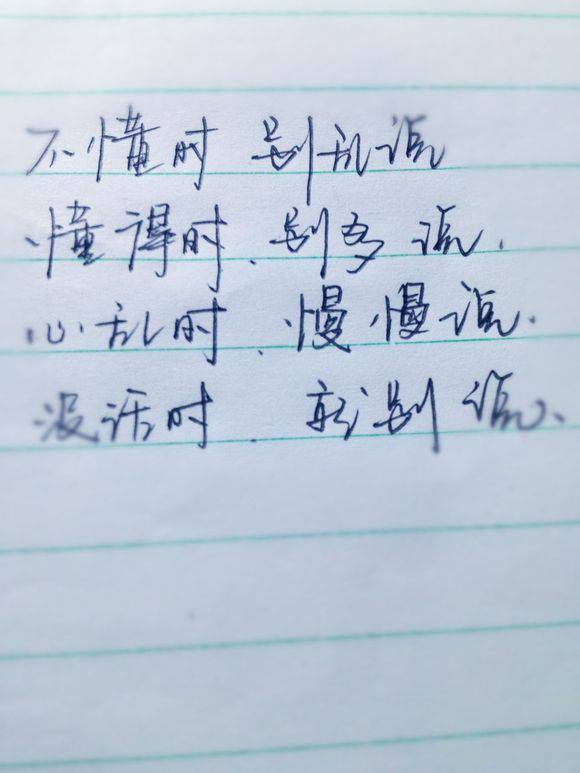 不懂时 别乱说
懂得时、别多说.
心乱时、慢慢说.
没话时、就别说、